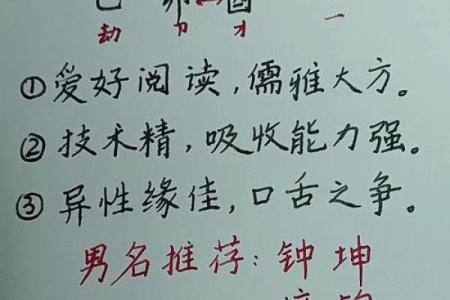 卯酉
劫 ㄗ 才 一
①爱好阅读,儒雅大方。
②技术精,吸收能力强。
③异性缘佳,口舌之争。
男名推荐:钟坤